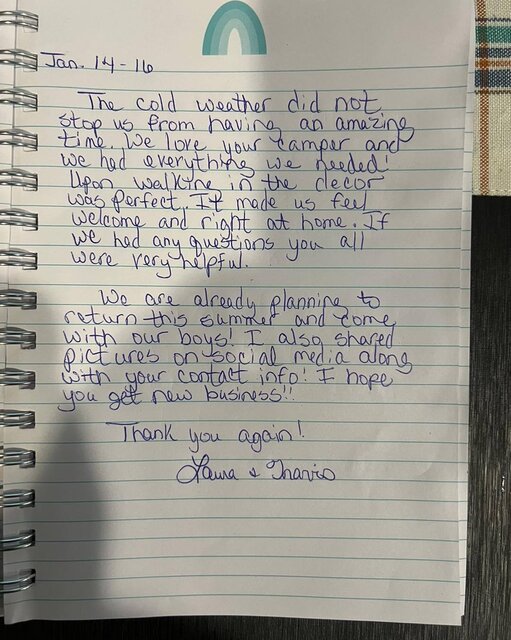 Jan. 14-16
The cold weather did not
stop us from having an amazing
time. We love your camper and
we had everything we needed!
Upon walking in the decor
was perfect. It made us feel
welcome and right at home. If
we had any questions you all
were very helpful.
We are already planning to
return this summer and come
with our boys! I also shared
pictures on social media along
with your contact info! I hope
you get new business!!
Thank you again!
Laura & Travis